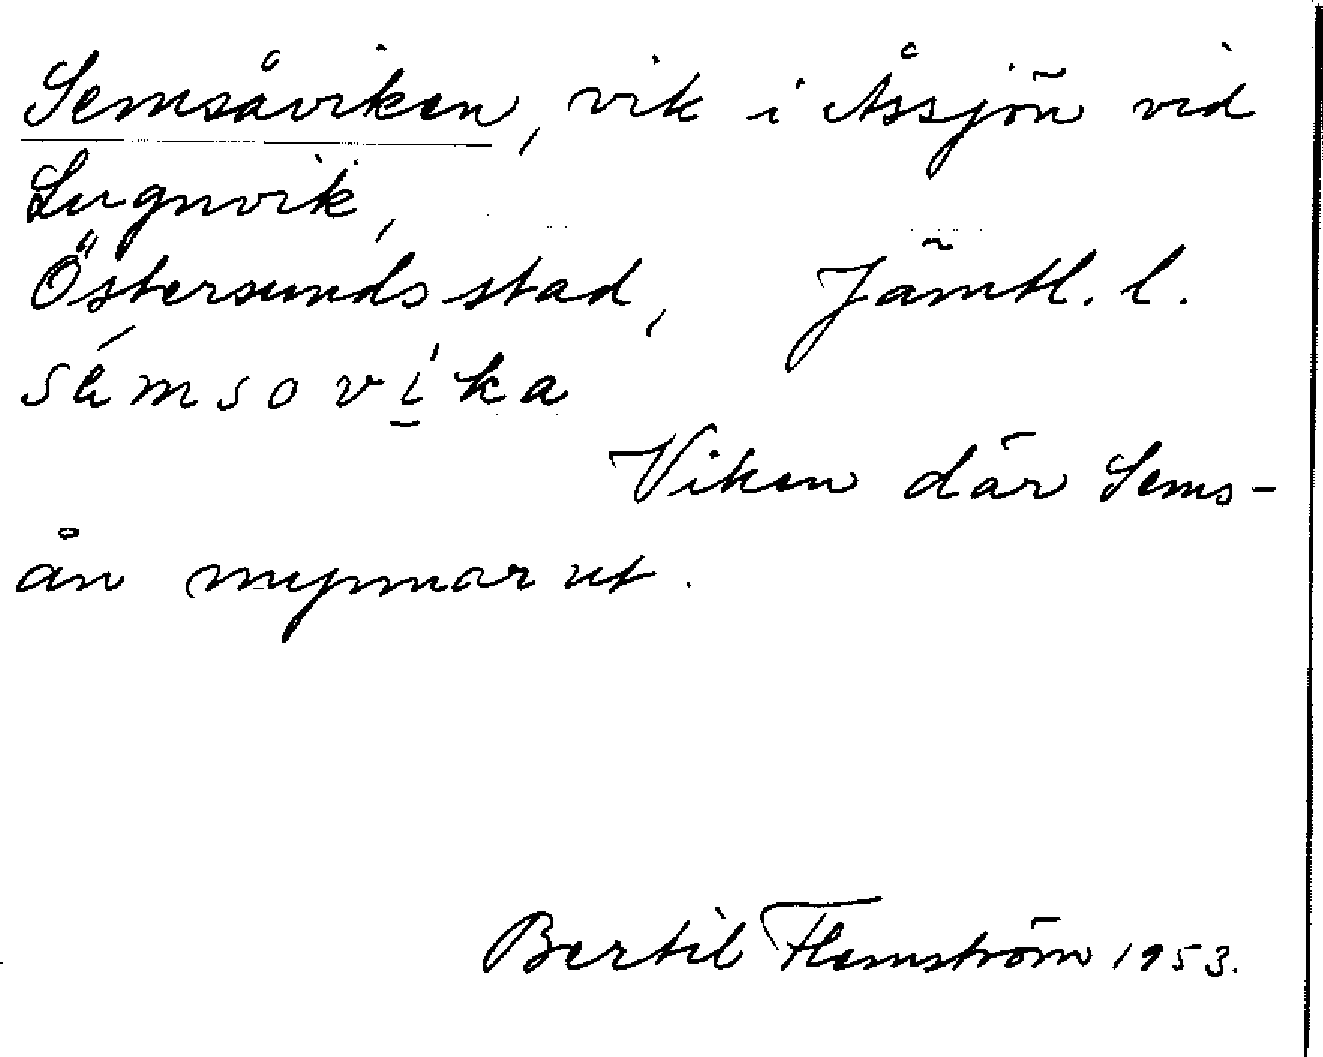 Semsåviken, vik i Åssjön vid
Lugnvik,
Östersunds stad, Jämtl. l.
sémsoví̲ka
Viken där Sems-
ån mynnar ut.
Bertil Flemström 1953.